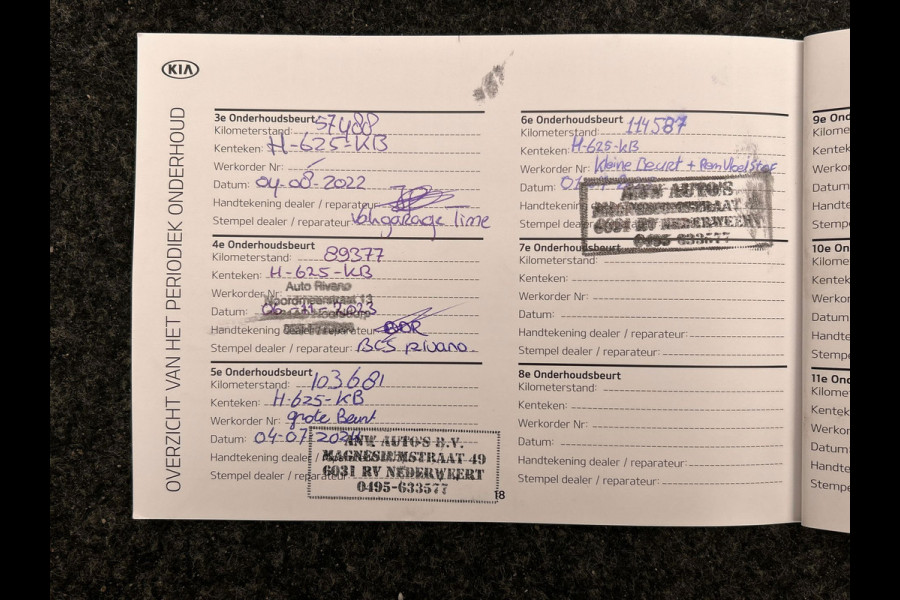 KIA
OVERZICHT VAN HET PERIODIEK ONDERHOUD
3e Onderhoudsbeurt
Kilometerstand: 57488
Kenteken: H-625-KB
Werkorder Nr:
Datum: 04-08-2022
Handtekening dealer / reparateur
Stempel dealer / reparateur: Vakgarage lime
4e Onderhoudsbeurt
Kilometerstand: 89377
Kenteken: H-625-KB
Werkorder Nr:
Auto Rivano
Datum: 06-11-2023
Handtekening dealer / reparateur
Stempel dealer / reparateur: BCS rivano
5e Onderhoudsbeurt
Kilometerstand: 103681
Kenteken: H-625-KB
Werkorder Nr: grote Beurt
Datum: 04-07-2024
Handtekening dealer /
Stempel dealer / reparateur
ANW AUTO'S B.V.
MAGNESIUMSTRAAT 49
6031 RV NEDERWEERT
0495-633577
18
6e Onderhoudsbeurt
Kilometerstand: 114587
Kenteken: H-625-KB
Werkorder Nr: Kleine Beurt + Remvloeistof
Datum:
Handtekening
Stempel
ANW AUTO'S
MAGNESIUMSTRAAT
6031 RV NEDERWEERT
0495-633577
7e Onderhoudsbeurt
Kilometerstand:
Kenteken:
Werkorder Nr:
Datum:
Handtekening dealer / reparateur:
Stempel dealer / reparateur:
8e Onderhoudsbeurt
Kilometerstand:
Kenteken:
Werkorder Nr:
Datum:
Handtekening dealer / reparateur:
Stempel dealer / reparateur:
9e Ond
Kilome
Kentek
Werko
Datum
Handte
Stempe
10e On
Kilome
Kentek
Werkor
Datum:
Handte
Stempe
11e Ond
Kilomet
Kenteke
Werkor
Datum:
Handte
Stempe